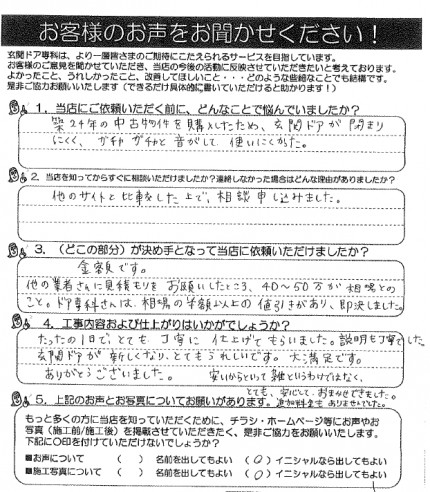 お客様のお声をお聞かせください！
玄関ドア専科は、より一層皆さまのご期待にこたえられるサービスを目指しています。
お客様のご意見を聞かせていただき、当店の今後の活動に反映させていただきたいと考えております。
よかったこと、うれしかったこと、改善してほしいこと・・・どのような些細なことでも結構です。
是非ご協力お願いいたします（できるだけ具体的に書いていただけると助かります！）
1. 当店にご依頼いただく前に、どんなことで悩んでいましたか？
築24年の中古物件を購入したため、玄関ドアが閉まり
にくく、ガチャガチャと音がして、使いにくかった。
2. 当店を知ってからすぐに相談いただけましたか？連絡しなかった場合はどんな理由がありましたか？
他のサイトと比較をした上で、相談申し込みました。
3. （どこの部分）が決め手となって当店に依頼いただけましたか？
金額です。
他の業者さんに見積もりをお願いしたところ、40～50万が相場との
こと。ドア専科さんは、相場の半額以上の値引きがあり、即決しました。
4. 工事内容および仕上がりはいかがでしょうか？
たったの1日で、とても丁寧に仕上げてもらいました。説明も丁寧でした
玄関ドアが新しくなり、とてもうれしいです。大満足です。
ありがとうございました。 安いからといって雑というわけではなく、
とても、安心しておまかせできました。
追加料金もありませんでした。
5. 上記のお声とお写真についてお願いがあります。
もっと多くの方に当店を知っていただくために、チラシ・ホームページ等にお声やお
写真（施工前/施工後）を掲載させていただきたく、是非ご協力をお願いいたします。
下記に○印を付けていただけないでしょうか？
■お声について （ ） 名前を出してもよい （○）イニシャルなら出してもよい
■施工写真について （ ） 名前を出してもよい （○）イニシャルなら出してもよい